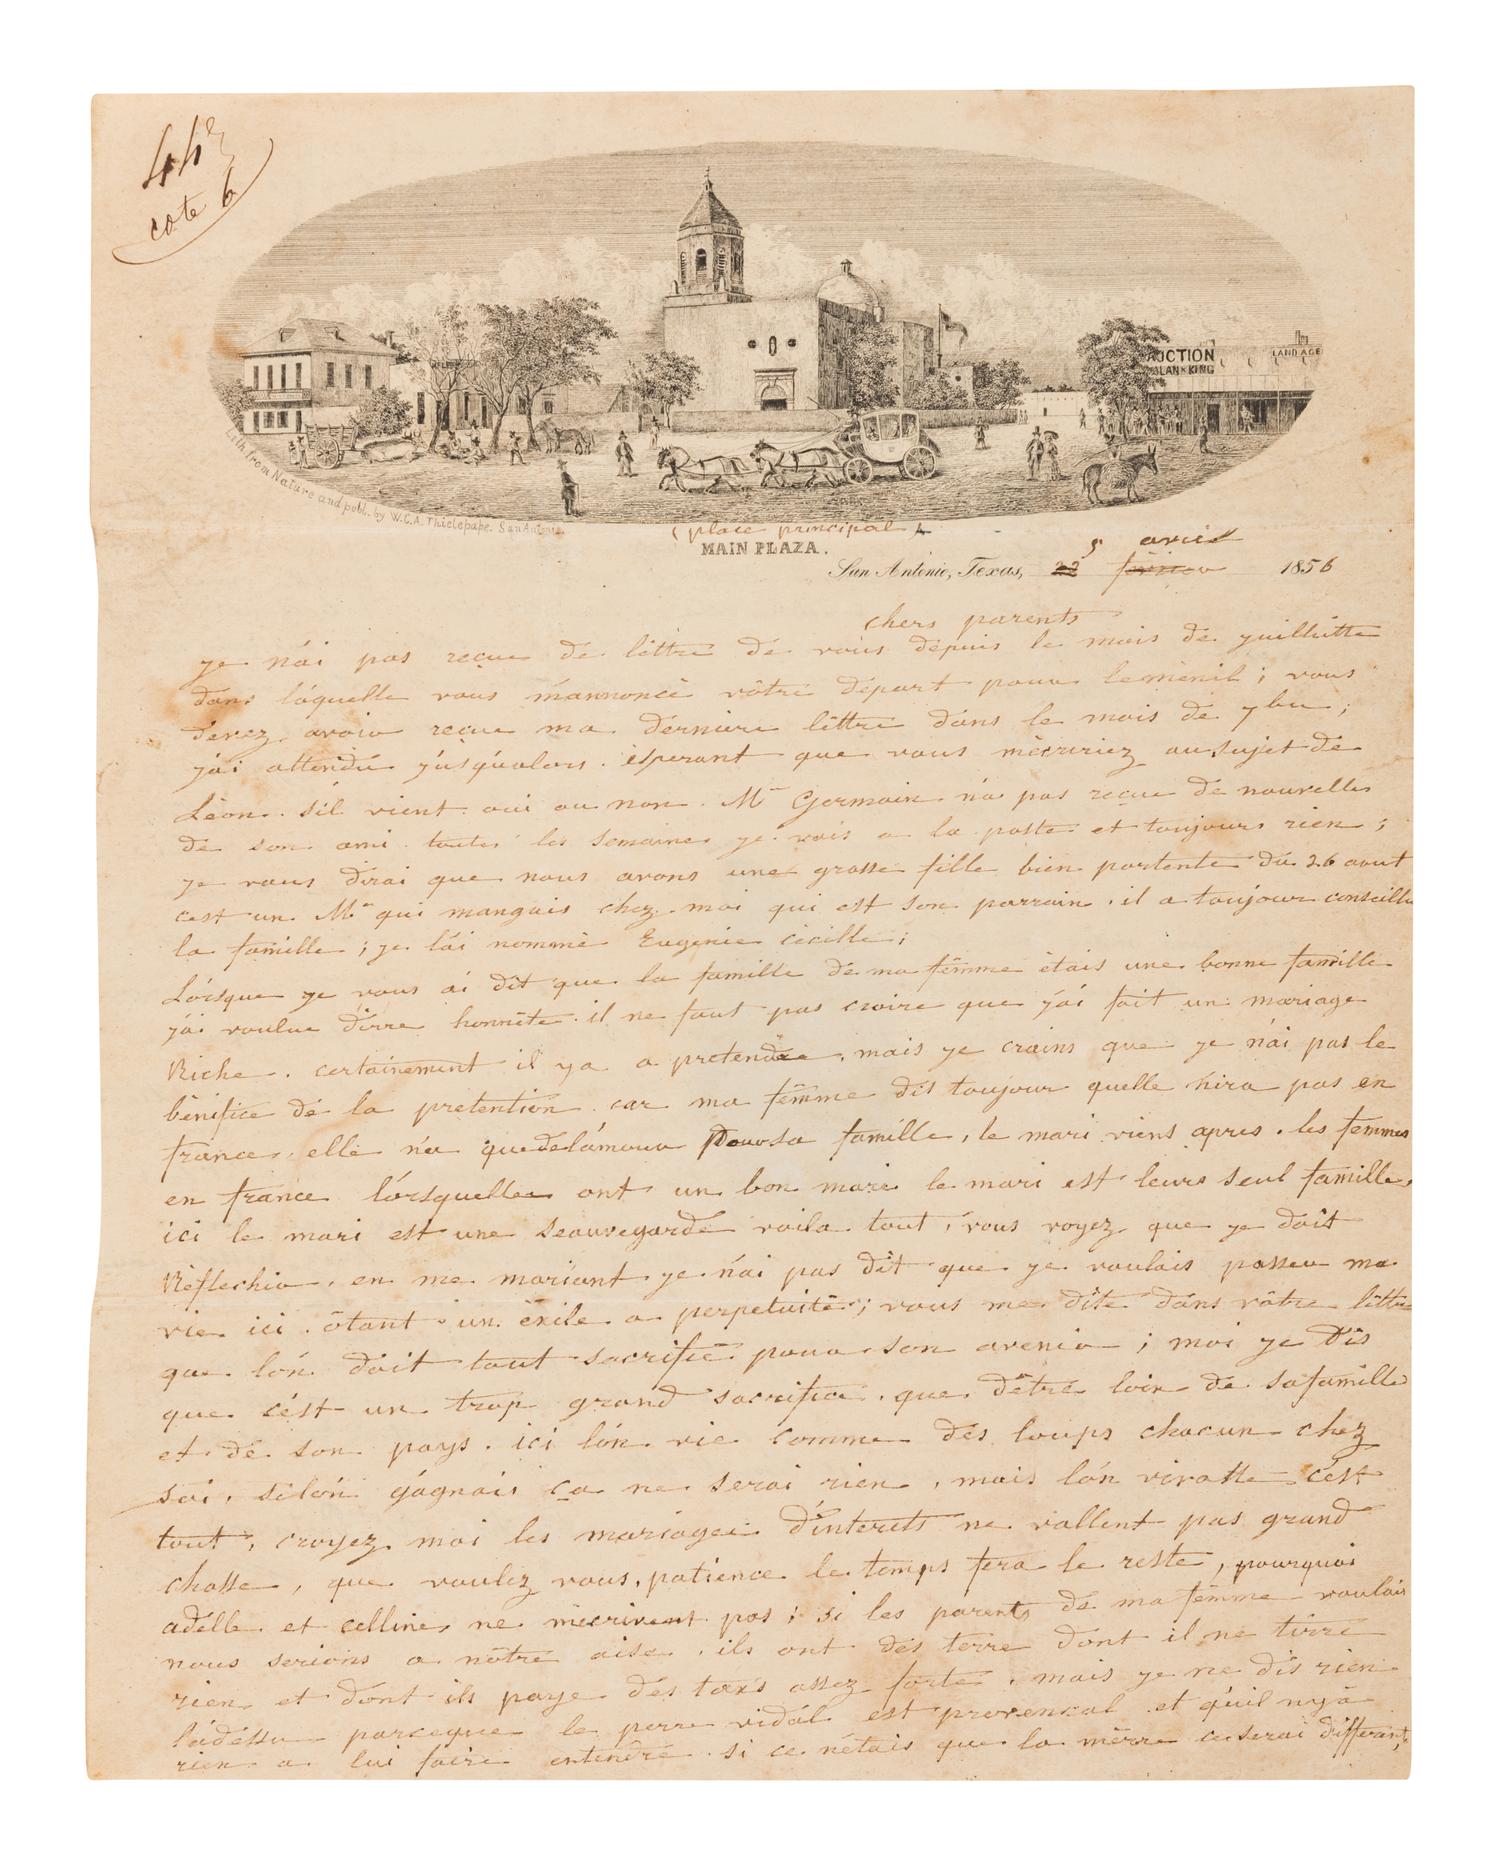 44e
cote 6
AUCTION
LAND AGE
Lith. from Nature and publ. by W.C.A. Thielepape. San Antonio.
( place principal )
MAIN PLAZA.
San Antonio, Texas, 22 5 fevrier avril 1856
chers parents
je n'ai pas reçue de lèttre de vous dépuis le mois de juilliètte
dans láquelle vous m'annoncè vôtre départ pour lemènil ; vous
devez avoir reçue ma dernière lèttre dans le mois de 7bre ;
j'ai attendu júsqúalors. èsperant que vous mècririez au sujet de
Lèon. s'il vient oui ou non. Mr Germain n'a pas reçue de nouvelles
de son ami toutes les semaines je vais a la poste et toujours rien ;
je vous dirai que nous avons une grosse fille bien portente du 26 aout
c'est un Mr qui mangais chez moi qui est son parrain. il a toujour conseillé
la famille ; je l'ai nommè Eugenie cècille ;
Lórsque je vous ai dît que la famille de ma fémme ètais une bonne famille
j'ai voulue dirre honnète. il ne faut pas croire que j'ai fait un mariage
Riche. certainement il ya a pretendre, mais je crains que je n'ai pas le
bènifice de la pretention. car ma fémme dis toujour quelle n'ira pas en
france, elle n'a que de l'amour pour sa famille, le mari viens apres. les femmes
en france lórsquelles ont un bon mari le mari est leurs seul famille,
ici le mari est une seauvegarde voila tout, vous voyez que je dóit
Rèflechir. en me mariant je n'ai pas dît que je voulais passer ma
vie ici. ôtant un èxile a perpetuitè ; vous me dîte dans vôtre lèttre
que lón doit tout sacrifiè pour son avenir ; moi je dis
que c'èst un trop grand sacrifice. que d'êtrè loin de sa famille
et de son pays. ici lón vie comme des loups chacun chez
soi. si lón gágnais ça ne serai rien, mais lón vivotte c'èst
tout, croyez moi les mariages d'interèts ne vallent pas grand
chosse, que voulez vous, patience le temps fera le reste, pourquoi
adèlle et celline ne mècrivent pas ; si les parents de ma fémme voulais
nous serions a nôtre aise. ils ont des terre dont il ne tirre
rien et dont ils paye des taxs assez forte, mais je ne dis rien
ládèssu parceque le perre vidál est provencal et qúil nyà
rien a lui faire entendre. si ce n'ètais que la mèrre ce serai differant,